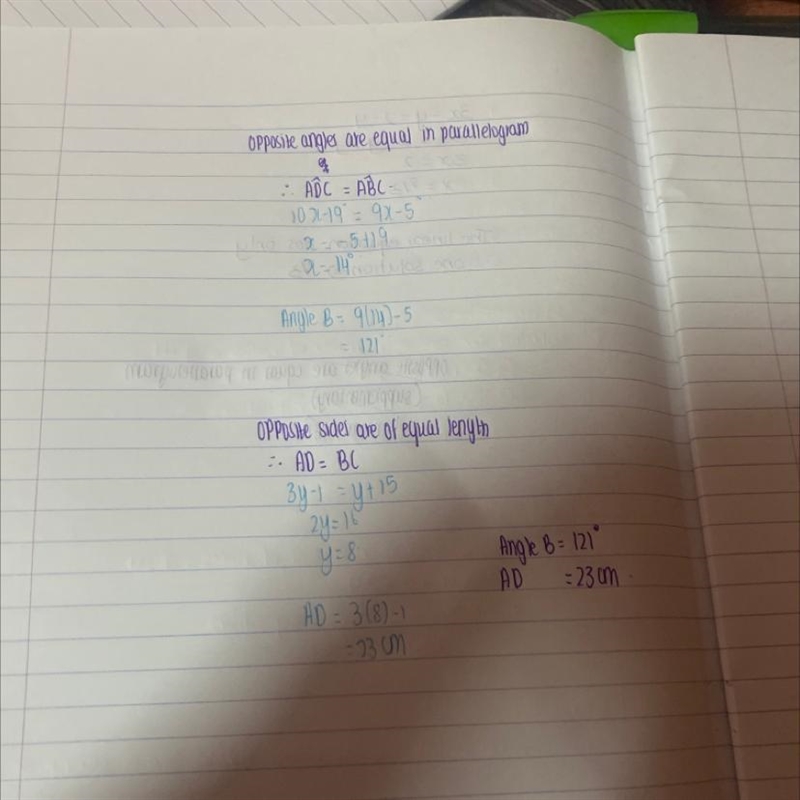 Opposite angles are equal in parallelogram
∴ AD̂C = AB̂C
10x-19° = 9x-5°
x = -5+19
x = 14°
Angle B = 9(14)-5
= 121°
Opposite sides are of equal length
∴ AD = BC
3y-1 = y+15
2y=16
y=8
Angle B = 121°
AD = 23cm
AD = 3(8)-1
=23cm